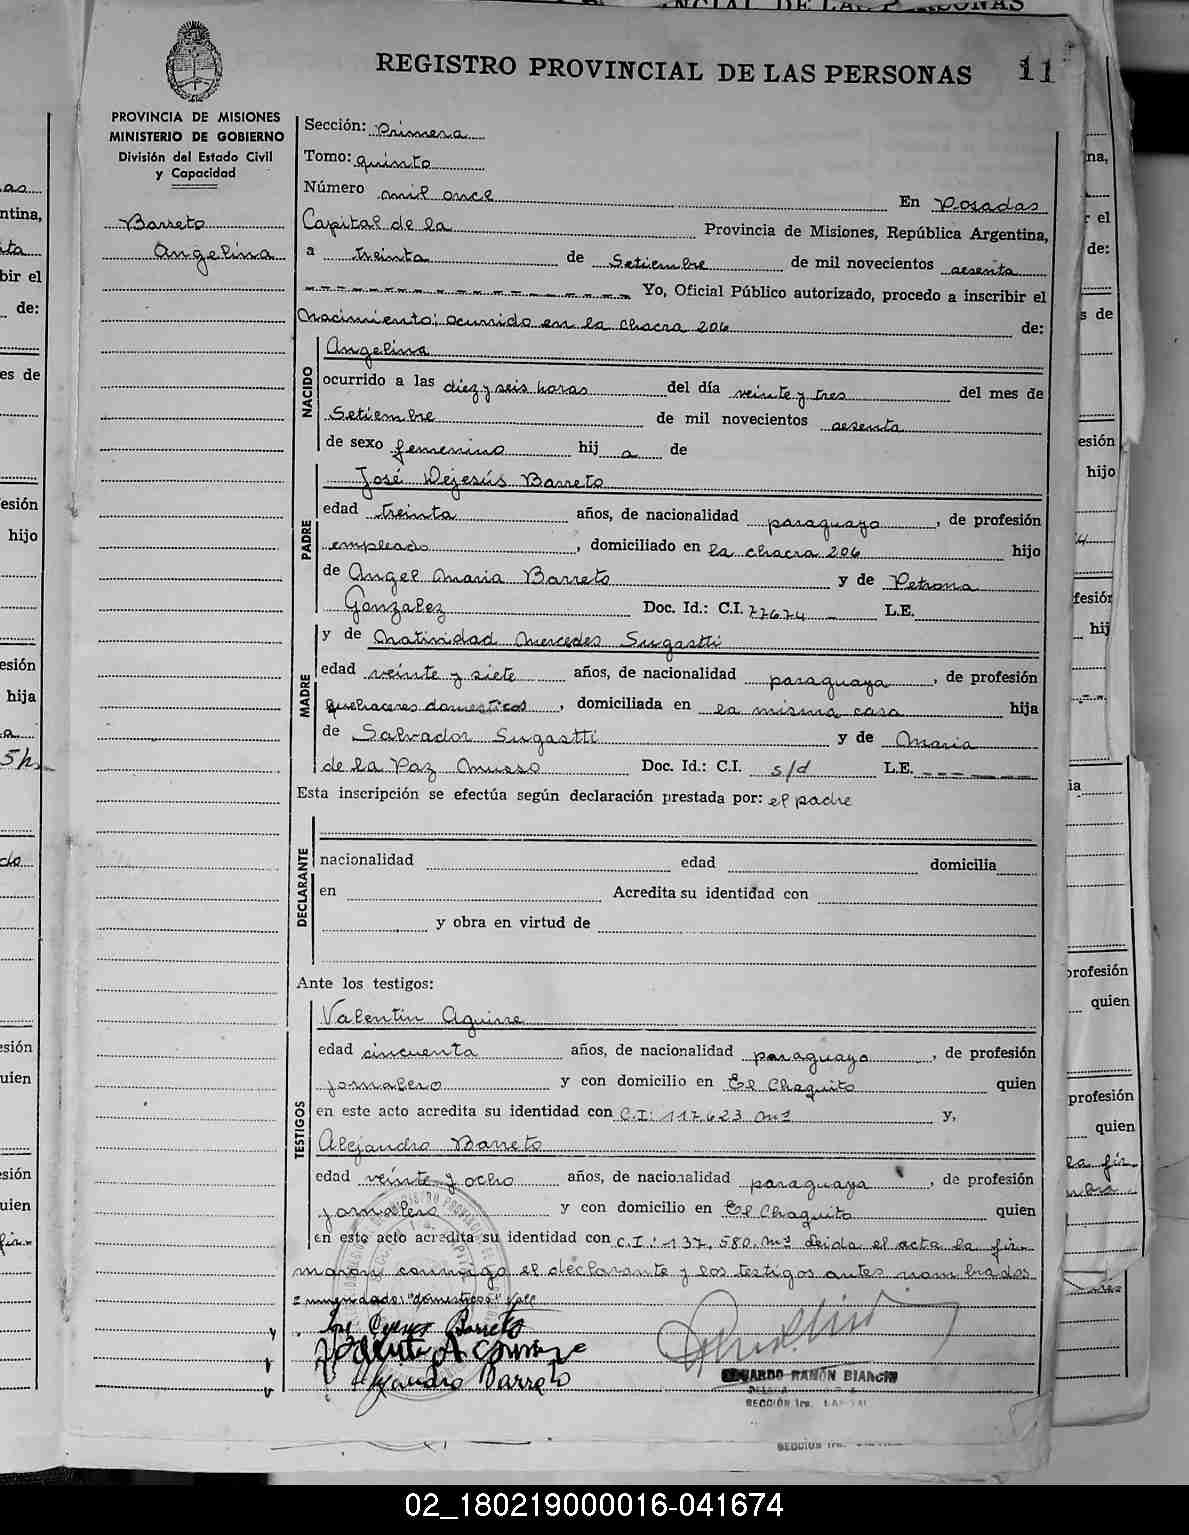 REGISTRO PROVINCIAL DE LAS PERSONAS 11
PROVINCIA DE MISIONES
MINISTERIO DE GOBIERNO
División del Estado Civil
y Capacidad
Barreto
Angelina
Sección: Primera
Tomo: quinto
Número mil once En Posadas
Capital de la Provincia de Misiones, República Argentina,
a treinta de Setiembre de mil novecientos sesenta
Yo, Oficial Público autorizado, procedo a inscribir el
Nacimiento: ocurrido en la chacra 206 de:
NACIDO
Angelina
ocurrido a las diez y seis horas del día veinte y tres del mes de
Setiembre de mil novecientos sesenta
de sexo femenino hij a de
PADRE
José Dejesús Barreto
edad treinta años, de nacionalidad paraguaya, de profesión
empleado, domiciliado en la chacra 206 hijo
de Angel Maria Barreto y de Petrona
Gonzalez Doc. Id.: C.I. 77674 L.E.
MADRE
y de Natividad Mercedes Sugastti
edad veinte y siete años, de nacionalidad paraguaya, de profesión
quehaceres domesticos, domiciliada en la misma casa hija
de Salvador Sugastti y de Maria
de la Paz Doc. Id.: C.I. s/d L.E.
Esta inscripción se efectúa según declaración prestada por: el padre
DECLARANTE
nacionalidad edad domicilia
en Acredita su identidad con
y obra en virtud de
Ante los testigos:
TESTIGOS
Valentin Aguirre
edad cincuenta años, de nacionalidad paraguaya, de profesión
jornalero y con domicilio en El Chaquito quien
en este acto acredita su identidad con C.I: 117.623 Mns y,
Alejandro Barreto
edad veinte y ocho años, de nacionalidad paraguaya, de profesión
jornalero y con domicilio en El Chaquito quien
en este acto acredita su identidad con C.I: 137.580. Mns Leida el acta la fir-
maron conmigo el declarante y los testigos antes nombrados
Enmendado: "domesticos" Vale
Barreto
Alejandro Barreto
EDUARDO RAMÓN BIANCHI
SECCIÓN 1ra. CAPITAL
02_180219000016-041674